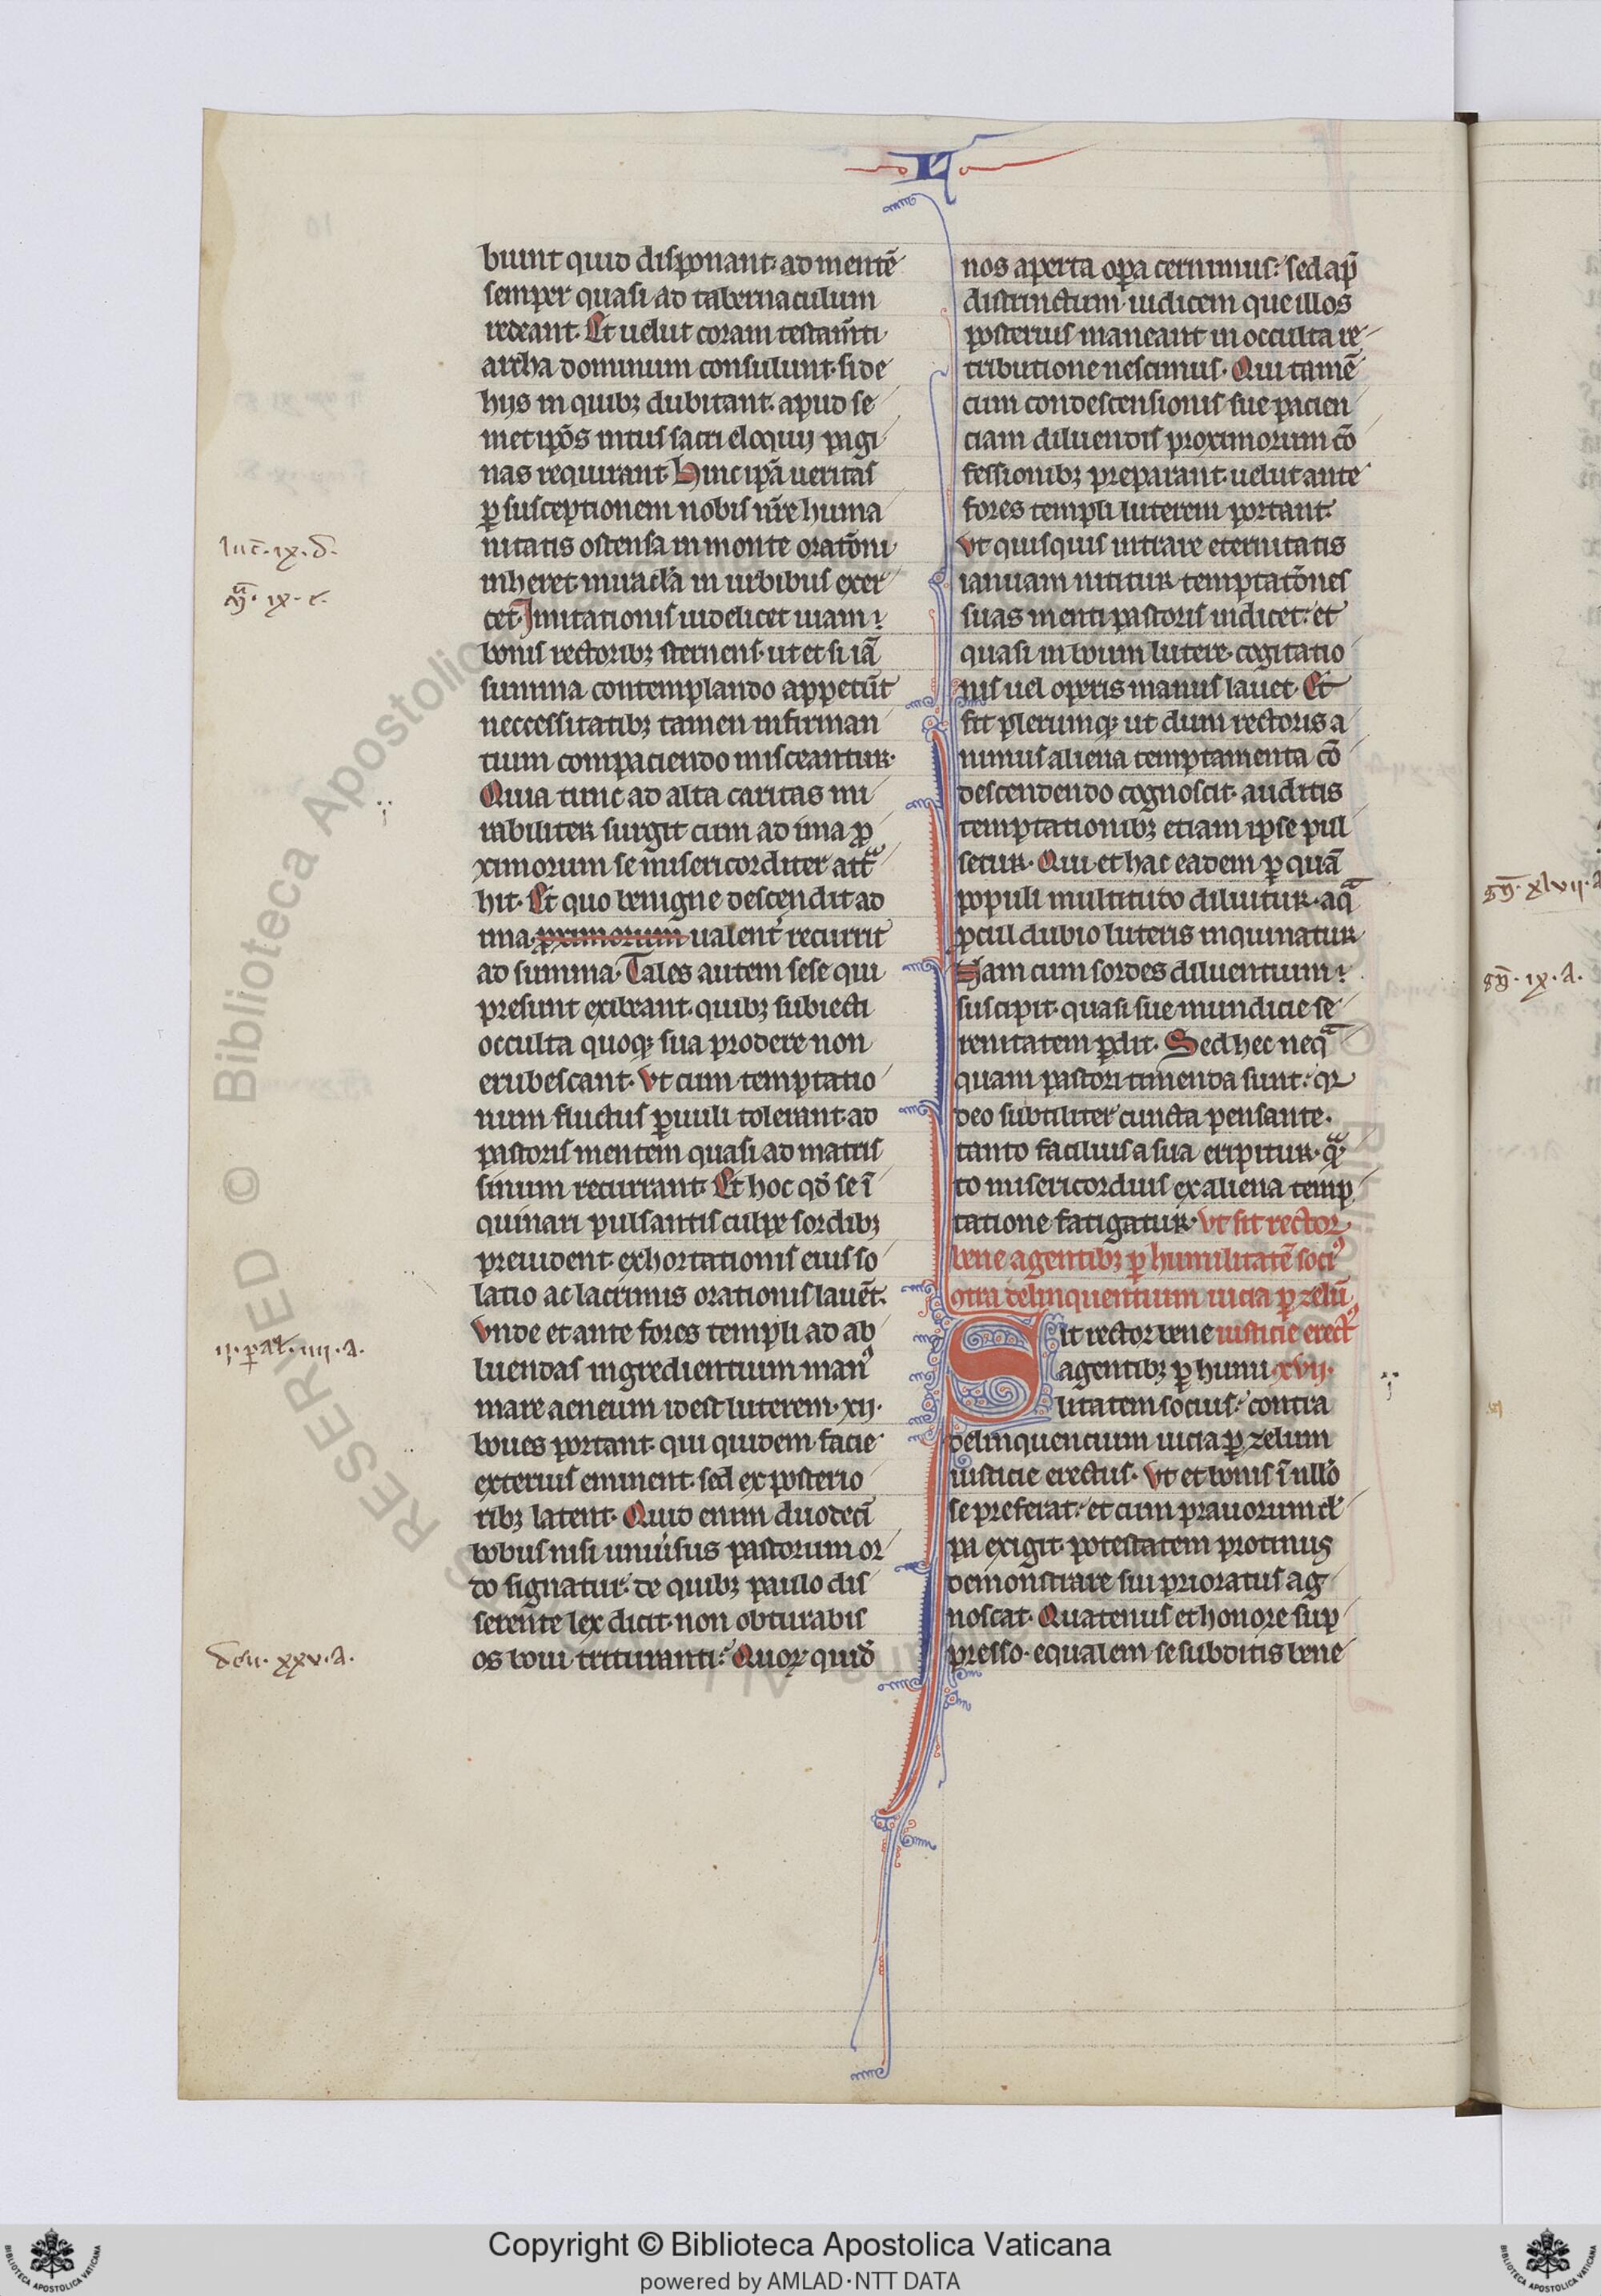 L
biunt quid disponant. ad mentē
semper quasi ad tabernaculum
redeant. Et uelut coram testam̄ti
archa dominum consulunt. si de
hijs in quibꝫ dubitant. apud se
met ip̄os intus sacri eloquij pagi
nas requirant. Hinc ip̄a ueritas
ꝑ susceptionem nobis nr̄e huma
nitatis ostensa in monte orat̄oni
inheret. miracl̄a in urbibus exer
cet. Imitationis uidelicet uiam
bonis rectoribꝫ sternens. ut et si iā
summa contemplando appetūt
neccessitatibꝫ tamen infirman
tium compaciendo misceantur.
Quia tunc ad alta caritas mi
rabiliter surgit cum ad ima ꝓ
ximorum se misericorditer attͣ
hit. Et quo benigne descendit ad
ima. ꝓximorum ualent̾ recurrit
ad summa. Tales autem sese qui
presunt exibeant. quibꝫ subiecti
occulta quoqꝫ sua prodere non
erubescant. Vt cum temptatio
num fluctus ꝑuuli tolerant. ad
pastoris mentem quasi ad matris
sinum recurrant. Et hoc qd̓ se ī
quinari pulsantis culpe sordibꝫ
preuident. exhortationis eius so
latio ac lacrimis orationis lauēt.
Vnde et ante fores templi ad ab
luendas ingredientium manꝰ
mare aeneum id est luterem. xij.
boues portant. qui quidem facie
exterius eminent. sed ex posterio
ribꝫ latent. Quid enim duodecī
bobus nisi uniu̾sus pastorum or
do signatur. de quibꝫ paulo dis
serente lex dicit. non obturabis
os boui trituranti. Quoꝝ quid̓
nos aperta oꝑa cernimus: sed ap̄
districtum iudicem que illos
posterius maneant in occulta re
tributione nescimus. Qui tamē
cum condescensionis sue pacien
ciam diluendis proximorum cō
fessionibꝫ preparant. uelut ante
fores templi luterem portant.
Vt quisquis intrare eternitatis
ianuam nititur. temptat̄ones
suas menti pastoris indicet: et
quasi in boum lutere. cogitatio
nis uel operis manus lauet. Et
fit plerumqꝫ ut dum rectoris a
nimus aliena temptamenta cō
descendendo cognoscit. auditis
temptationibꝫ etiam ipse pul
setur. Qui et hac eadem ꝑ quā
populi multitudo diluitur. aqͣ
ꝓcul dubio luteris inquinatur
Nam cum sordes diluentium
suscipit. quasi sue mundicie se
renitatem ꝑdit. Sed hec neqͣ
quam pastori timenda sunt: qꝛ
deo subtiliter cuncta pensante.
tanto facilius a sua eripitur. qͣ̄
to misericordius ex aliena temp
tatione fatigatur. Vt sit rector
bene agentibꝫ ꝑ humilitatē sociꝰ
ꝯtra delinquentium uicia ꝑ zelū
Sit rector bene iusticie erectꝰ
agentibꝫ ꝑ humi xvij.
litatem socius: contra
delinquencium uicia ꝑ zelum
iusticie erectus. Vt et bonis ī nullo
se preferat: et cum prauorum cl̓
pa exigit. potestatem protinus
demonstrare sui prioratus ag
noscat. Quatenus et honore sup
presso. equalem se subditis bene
luc̄. ix. d.
m̄ͣ. ix. c.
ij. ꝑal. iiij. a.
deu. xxv. a.
gn̄. xlvij. a
gn̄. ix. a.
RESERVED © Biblioteca Apostolica
Copyright © Biblioteca Apostolica Vaticana
powered by AMLAD·NTT DATA
BIBLIOTECA APOSTOLICA VATICANA
BIBLIOTECA APOSTOLICA VATICANA